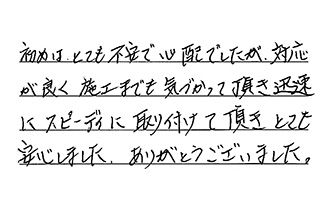 初めは、とても不安で心配でしたが、対応
が良く施工までも気づかって頂き迅速
にスピーディに取り付けて頂きとても
安心しました。ありがとうございました。